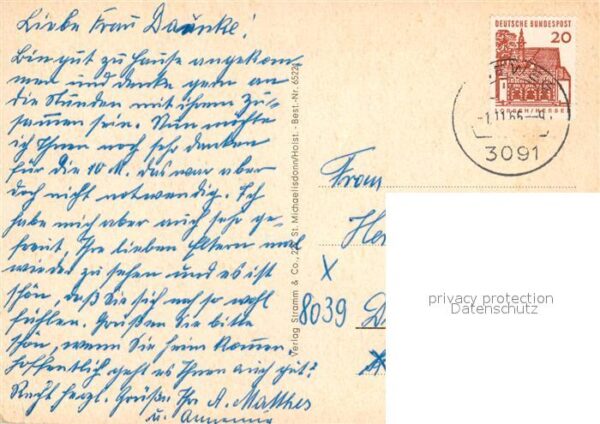 Liebe Frau Daunke!
Bin gut zu Hause angekom-
men und denke gern an
die Stunden mit Ihrem Zu-
sammen sein. Nun möchte
ich Ihnen noch sehr danken
für die 10 M. das war aber
doch nicht notwendig. Ich
habe mich aber auch sehr ge-
freut, Ihre lieben Eltern mal
wieder zu sehen und es ist
schön, daß Sie sich noch so wohl
fühlen. Grüßen Sie bitte
schön, wenn Sie heim kommen.
Hoffentlich geht es Ihnen auch gut?
Recht herzl. Grüße Ihr A. Matthes
u.
Verlag Stramm & Co., St. Michaelisdonn/Holst. - Best.-Nr. 6522
DEUTSCHE BUNDESPOST
20
LORSCH/HESSEN
-1.11.66-9
3091
Frau
8039
privacy protection
Datenschutz